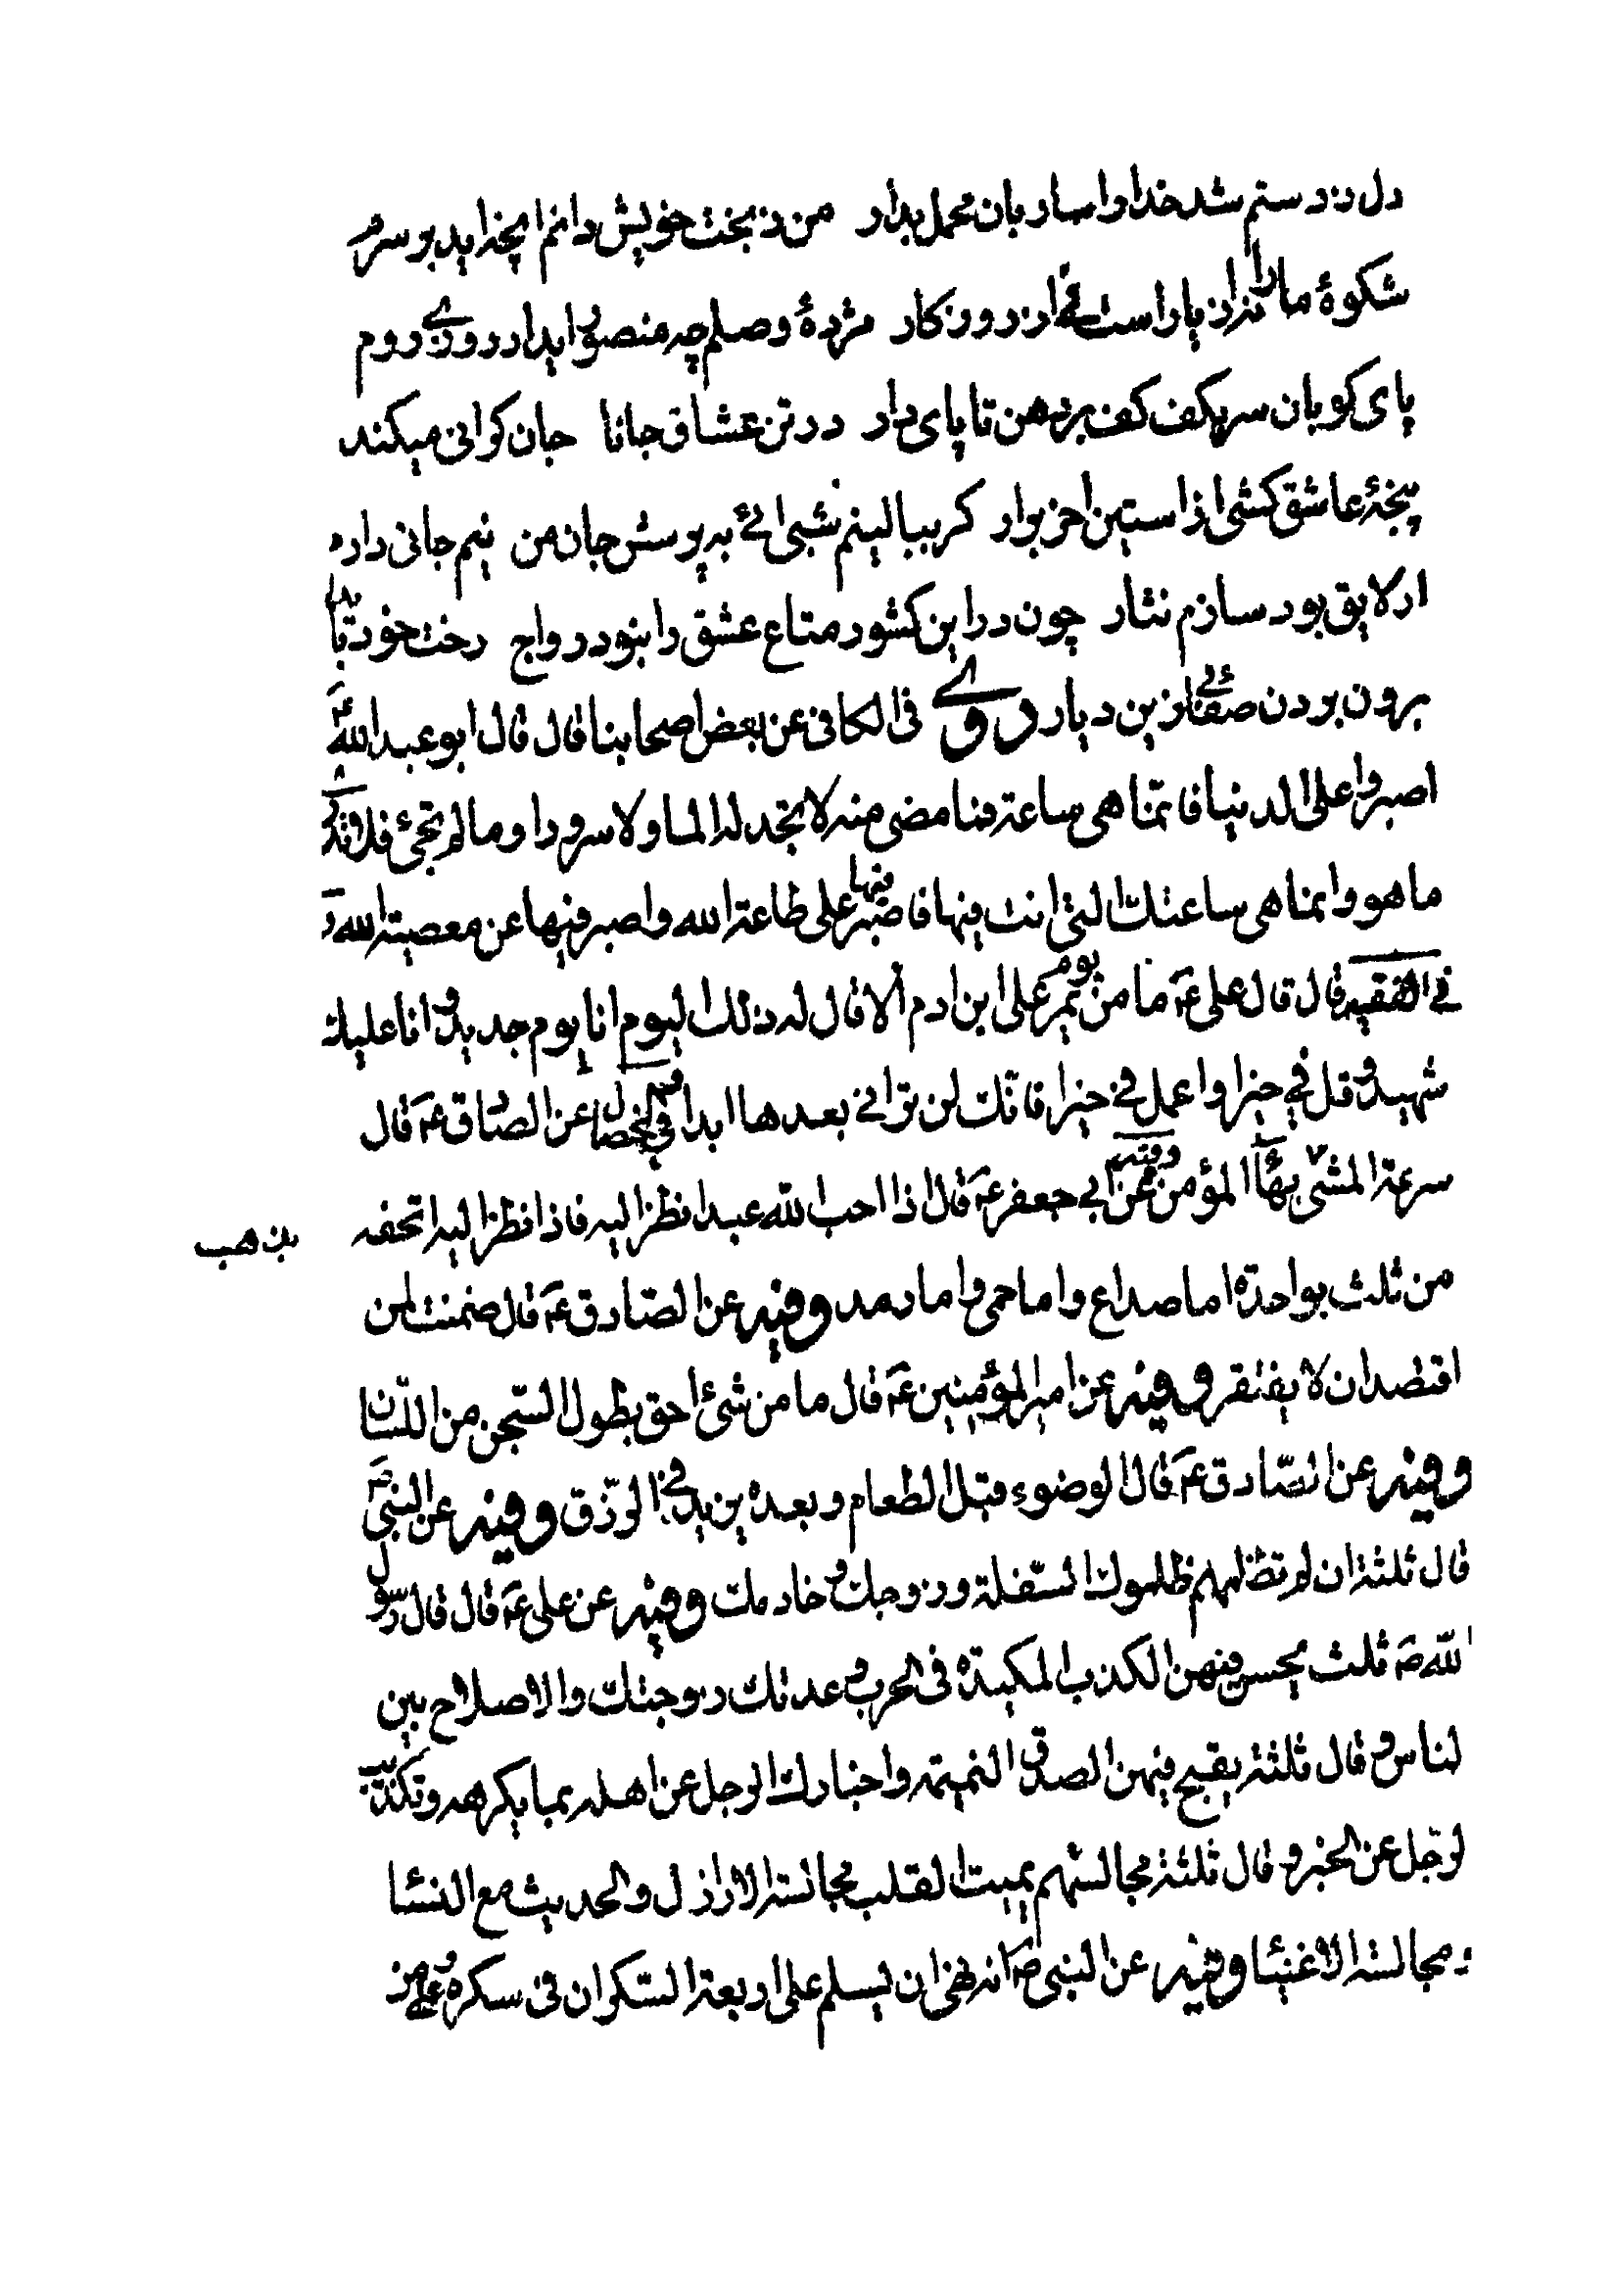 دل ز دستم شد خدا را ساربان محمل بدار من ز بخت خویش دانم آنچه آید بر سرم
شکوهٔ ما را نه از یار است نی از روزکار مژدهٔ وصلم چه منصور آید ار روزی ز دوم
پای کوبان سر بکف کف بر دهن تا پای دار در تن عشاق جانا جان کرانی میکند
پنجهٔ عاشق کشی از استین اخر برار کر ببالینم شبی ائی به پرسش جان من نیم جانی دارم
ار لایق بود سازم نثار چون در این کشور متاع عشق را نبود رواج رخت خود باید
برون بردن صفی از زین دیار روی فی الکافی عن بعض اصحابنا قال قال ابو عبد الله ع
اصبروا علی الدنیا فانما هی ساعة فما مضی منه لا تجد له الما ولا سرورا وما لم یجئ فلا تدری
ما هو وانما هی ساعتك التی انت فیها فاصبر فیها علی طاعة الله واصبر فیها عن معصیة الله و
فی الفقیه قال قال علی ع ما من یوم یمر علی ابن ادم الا قال له ذلك الیوم انا یوم جدید وانا علیك
شهید فقل فی خیرا واعمل فی خیرا فانك لن ترانی بعدها ابدا وفی الخصال عن الصادق ع قال
سرعة المشی بهاء المؤمن وفیه عن ابی جعفر ع قال اذا احب الله عبدا نظر الیه فاذا نظر الیه اتحفه
یذهب
من ثلث بواحدة اما صداع واما حمی واما رمد وفیه عن الصادق ع قال ضمنت لمن
اقتصد ان لا یفتقر وفیه عن امیر المؤمنین ع قال ما من شئ احق بطول السجن من اللسان
وفیه عن الصادق ع قال الوضوء قبل الطعام وبعده یزید فی الرزق وفیه عن النبی ص
قال ثلثة ان لم تظلمهم ظلموك السفلة وزوجك وخادمك وفیه عن علی ع قال قال رسول
الله ص ثلث یحسن فیهن الكذب المكیدة فی الحرب وعدتك زوجتك والاصلاح بین
لناس وقال ثلثة یقبح فیهن الصدق النمیمة واخبارك الرجل عن اهله بما یكرهه وتكذیب
لرجل عن الخبر وقال ثلثة مجالستهم یمیت القلب مجالسة الاراذل والحدیث مع النساء
ومجالسة الاغنیاء وفیه عن النبی ص انه نهی ان یسلم علی اربعة السكران فی سكره وعلی من